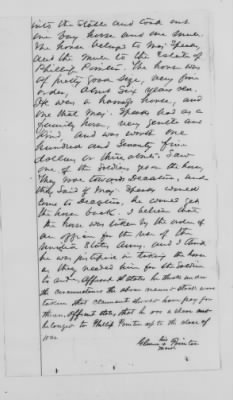 into the Stable and took out
one Bay horse and one mule.
The horse belongs to Maj. Speake,
and the mule to the Estate of
Phillip Pointer. The horse was
of pretty good size, very fine
order, about Six years old.
He was a family horse, and
one that Maj. Speake had as a
family horse, very gentle and
kind, and was worth one
hundred and Seventy five
dollars or there abouts. I saw
one of the Soldiers upon the horse,
They rode towards Decatur, and
they Said if Maj. Speake would
come to Decatur, he would get
the horse back. I believe that
the horse was taken by the order of
an officer for the use of the
United States Army. and I think
he was justified in taking the horse
as they needed him for the Soldiers
to
the circumstances the above named stock were
taken that claimant should have pay for
them. Affiant states that he was a slave and
belonged to Phillip Pointer up to the close of
war.
his
Pointer
mark